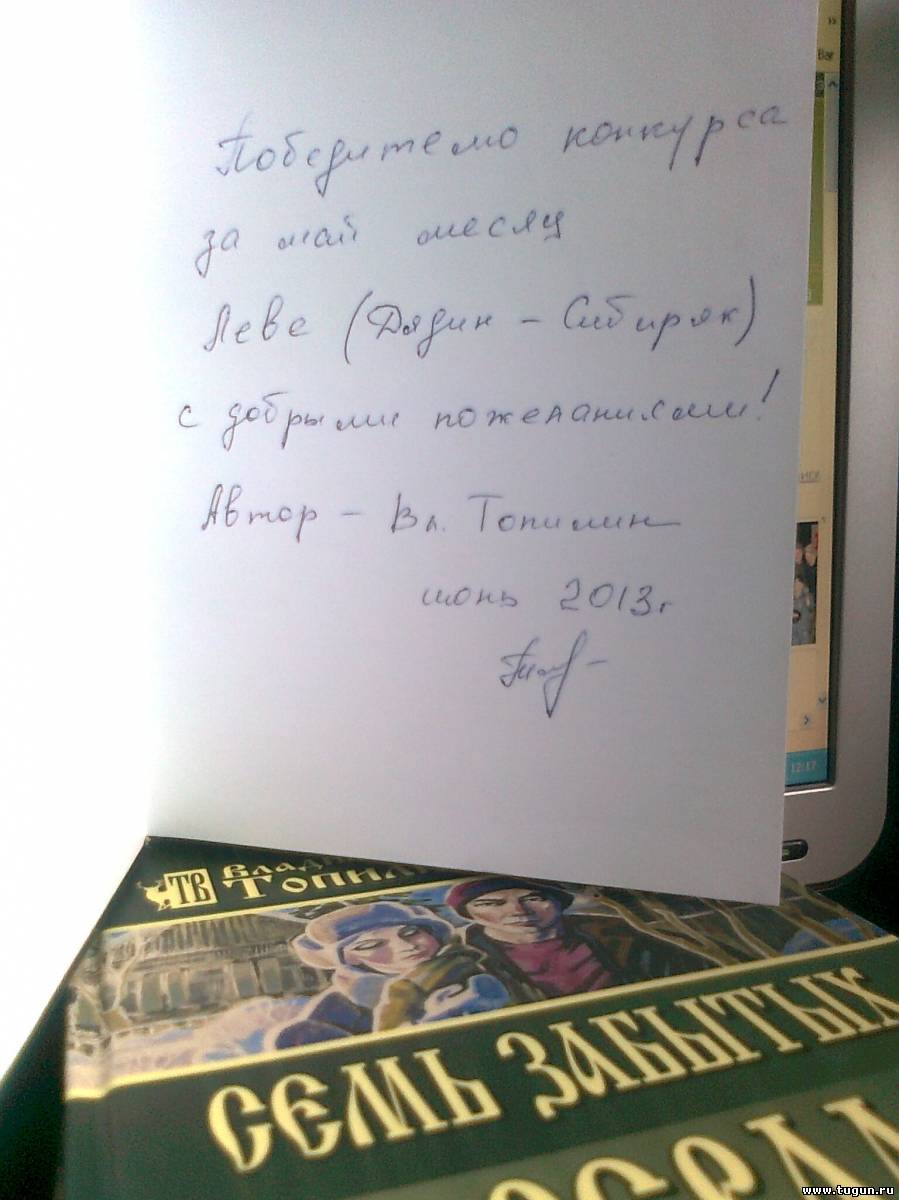 Победителю конкурса
за май месяц
Леве (Дядин - Сибиряк)
с добрыми пожеланиями!
Автор - Вл. Топилин
июнь 2013г
12:17
ТВ
Топил
СЕМЬ ЗАБЫТЫХ
www.tugun.ru